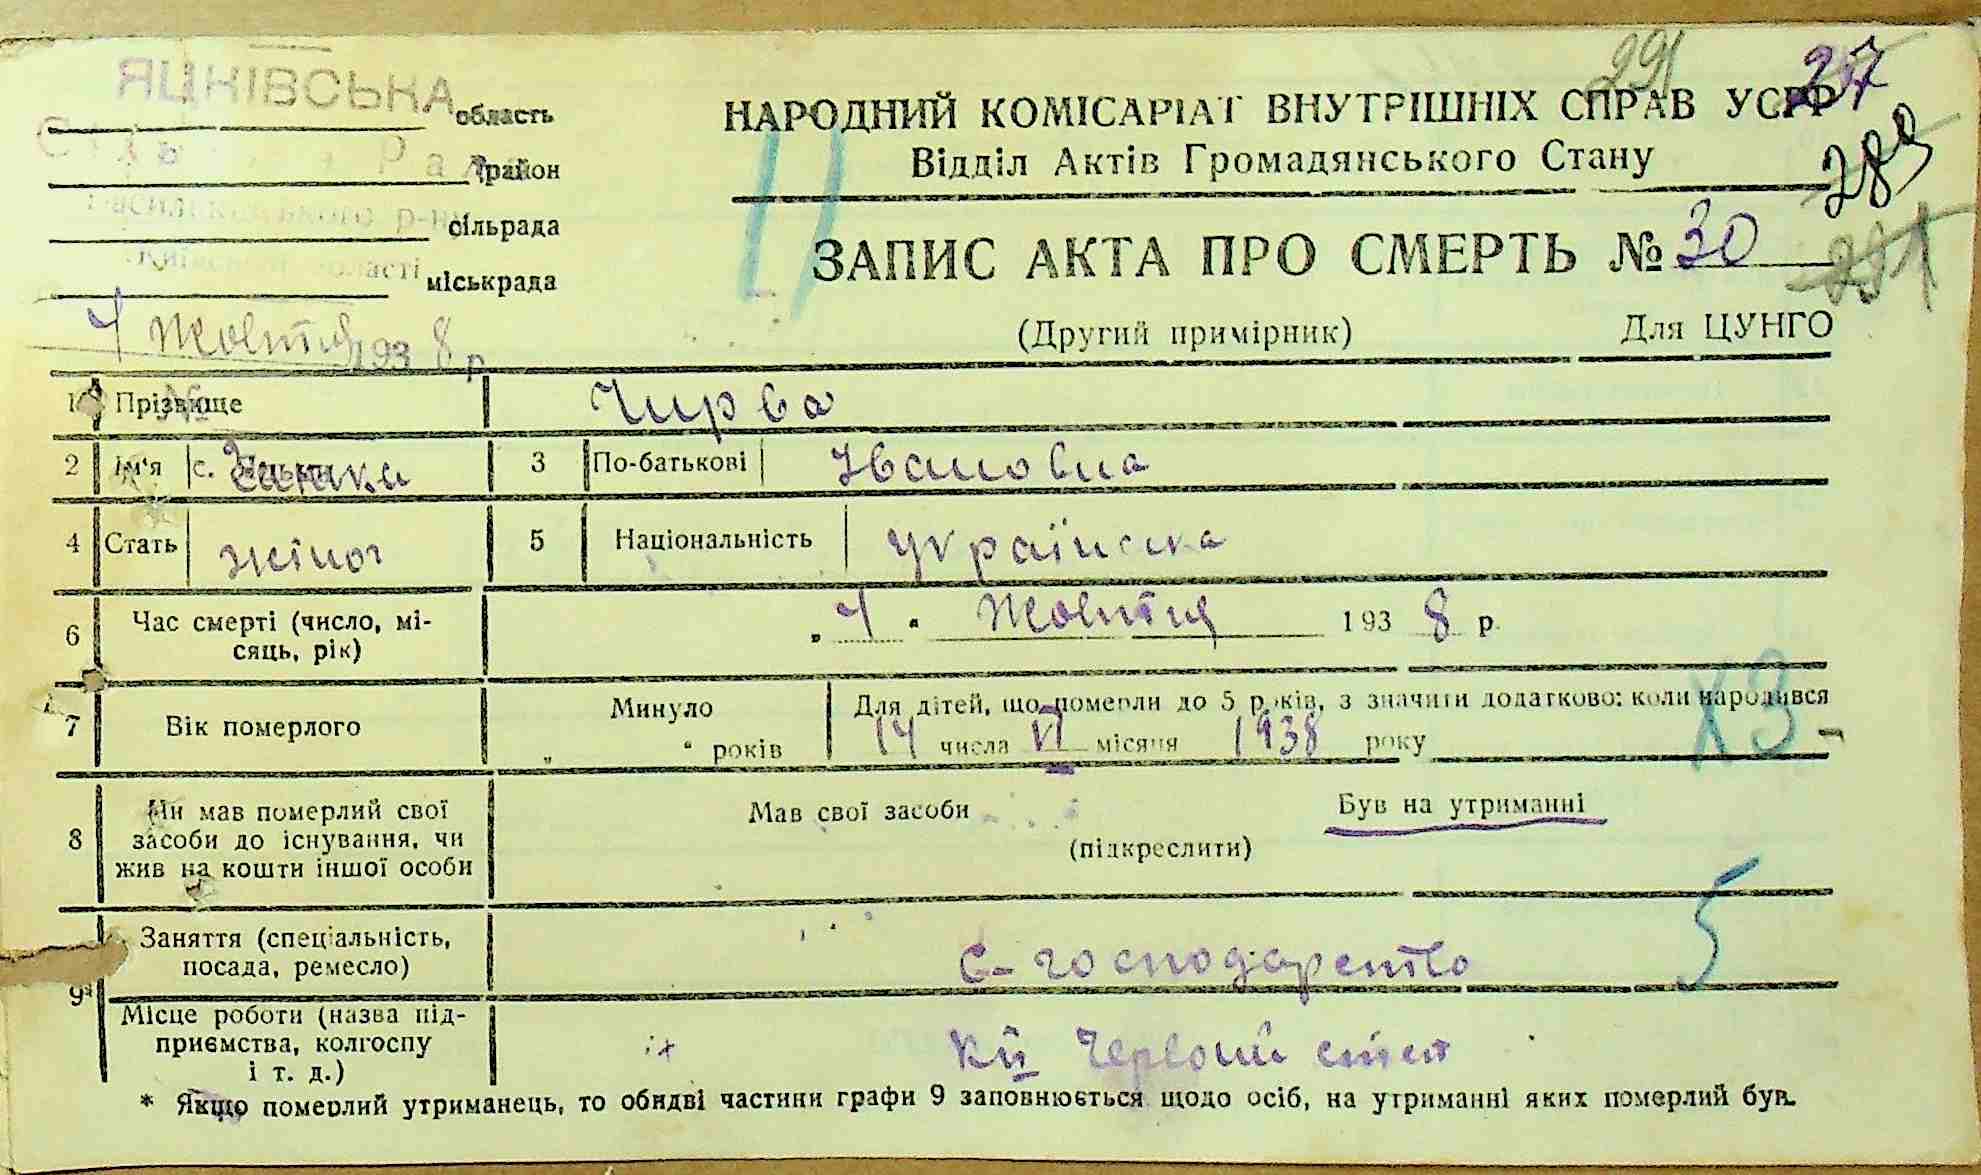 ЯЦКІВСЬКА
область
район
сільрада
міськрада
4 Жовтня 1938 р
291 37
НАРОДНИЙ КОМІСАРІАТ ВНУТРІШНІХ СПРАВ УСРР
Відділ Актів Громадянського Стану
289
ЗАПИС АКТА ПРО СМЕРТЬ № 30
291
(Другий примірник) Для ЦУНГО
1 Прізвище Чирва
2 Ім'я 3 По-батькові Івановна
4 Стать жіноч 5 Національність українка
6 Час смерті (число, мі-
сяць, рік) „4“ Жовтня 1938 р.
7 Вік померлого Минуло
„ “ років
Для дітей, що померли до 5 років, зазначити додатково: коли народився
14 числа VI місяця 1938 року
ХЗ
8 Чи мав померлий свої
засоби до існування, чи
жив на кошти іншої особи
Мав свої засоби Був на утриманні
(підкреслити)
9*
Заняття (спеціальність,
посада, ремесло) с-господарство
5
Місце роботи (назва під-
приємства, колгоспу
і т. д.) Червоний степ
* Якщо померлий утриманець, то обидві частини графи 9 заповнюється щодо осіб, на утриманні яких померлий був.